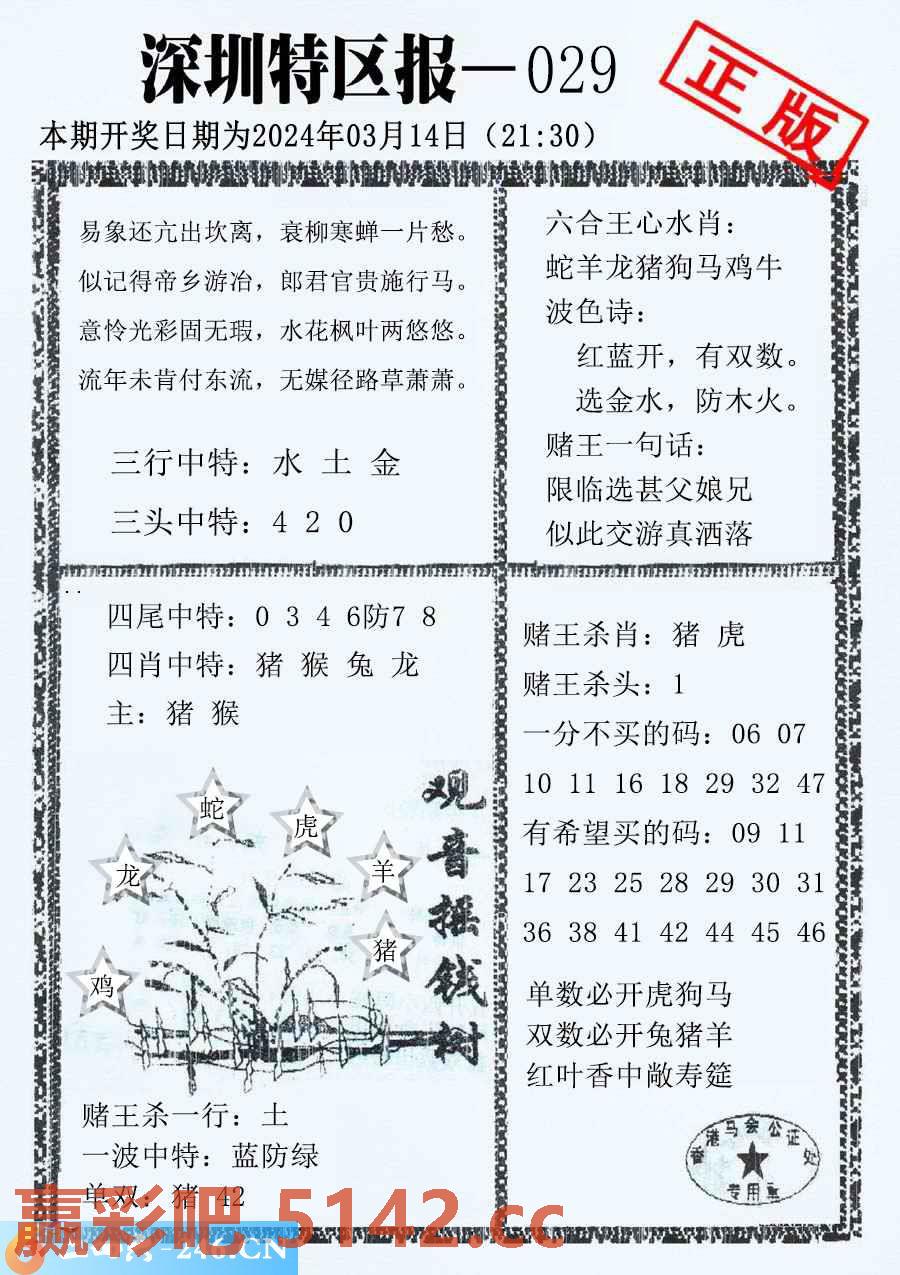 深圳特区报—029
正版
本期开奖日期为2024年03月14日（21:30）
易象还亢出坎离，衰柳寒蝉一片愁。
似记得帝乡游冶，郎君官贵施行马。
意怜光彩固无瑕，水花枫叶两悠悠。
流年未肯付东流，无媒径路草萧萧。
三行中特：水 土 金
三头中特：4 2 0
六合王心水肖：
蛇羊龙猪狗马鸡牛
波色诗：
红蓝开，有双数。
选金水，防木火。
赌王一句话：
限临选甚父娘兄
似此交游真洒落
四尾中特：0 3 4 6防7 8
四肖中特：猪 猴 兔 龙
主：猪 猴
蛇
虎
龙
羊
猪
鸡
观音摇钱树
赌王杀一行：土
一波中特：蓝防绿
单双：猪 42
赌王杀肖：猪 虎
赌王杀头：1
一分不买的码：06 07
10 11 16 18 29 32 47
有希望买的码：09 11
17 23 25 28 29 30 31
36 38 41 42 44 45 46
单数必开虎狗马
双数必开兔猪羊
红叶香中敞寿筵
香港马会公证处
专用章
赢彩吧 5142.cc
-246.CN